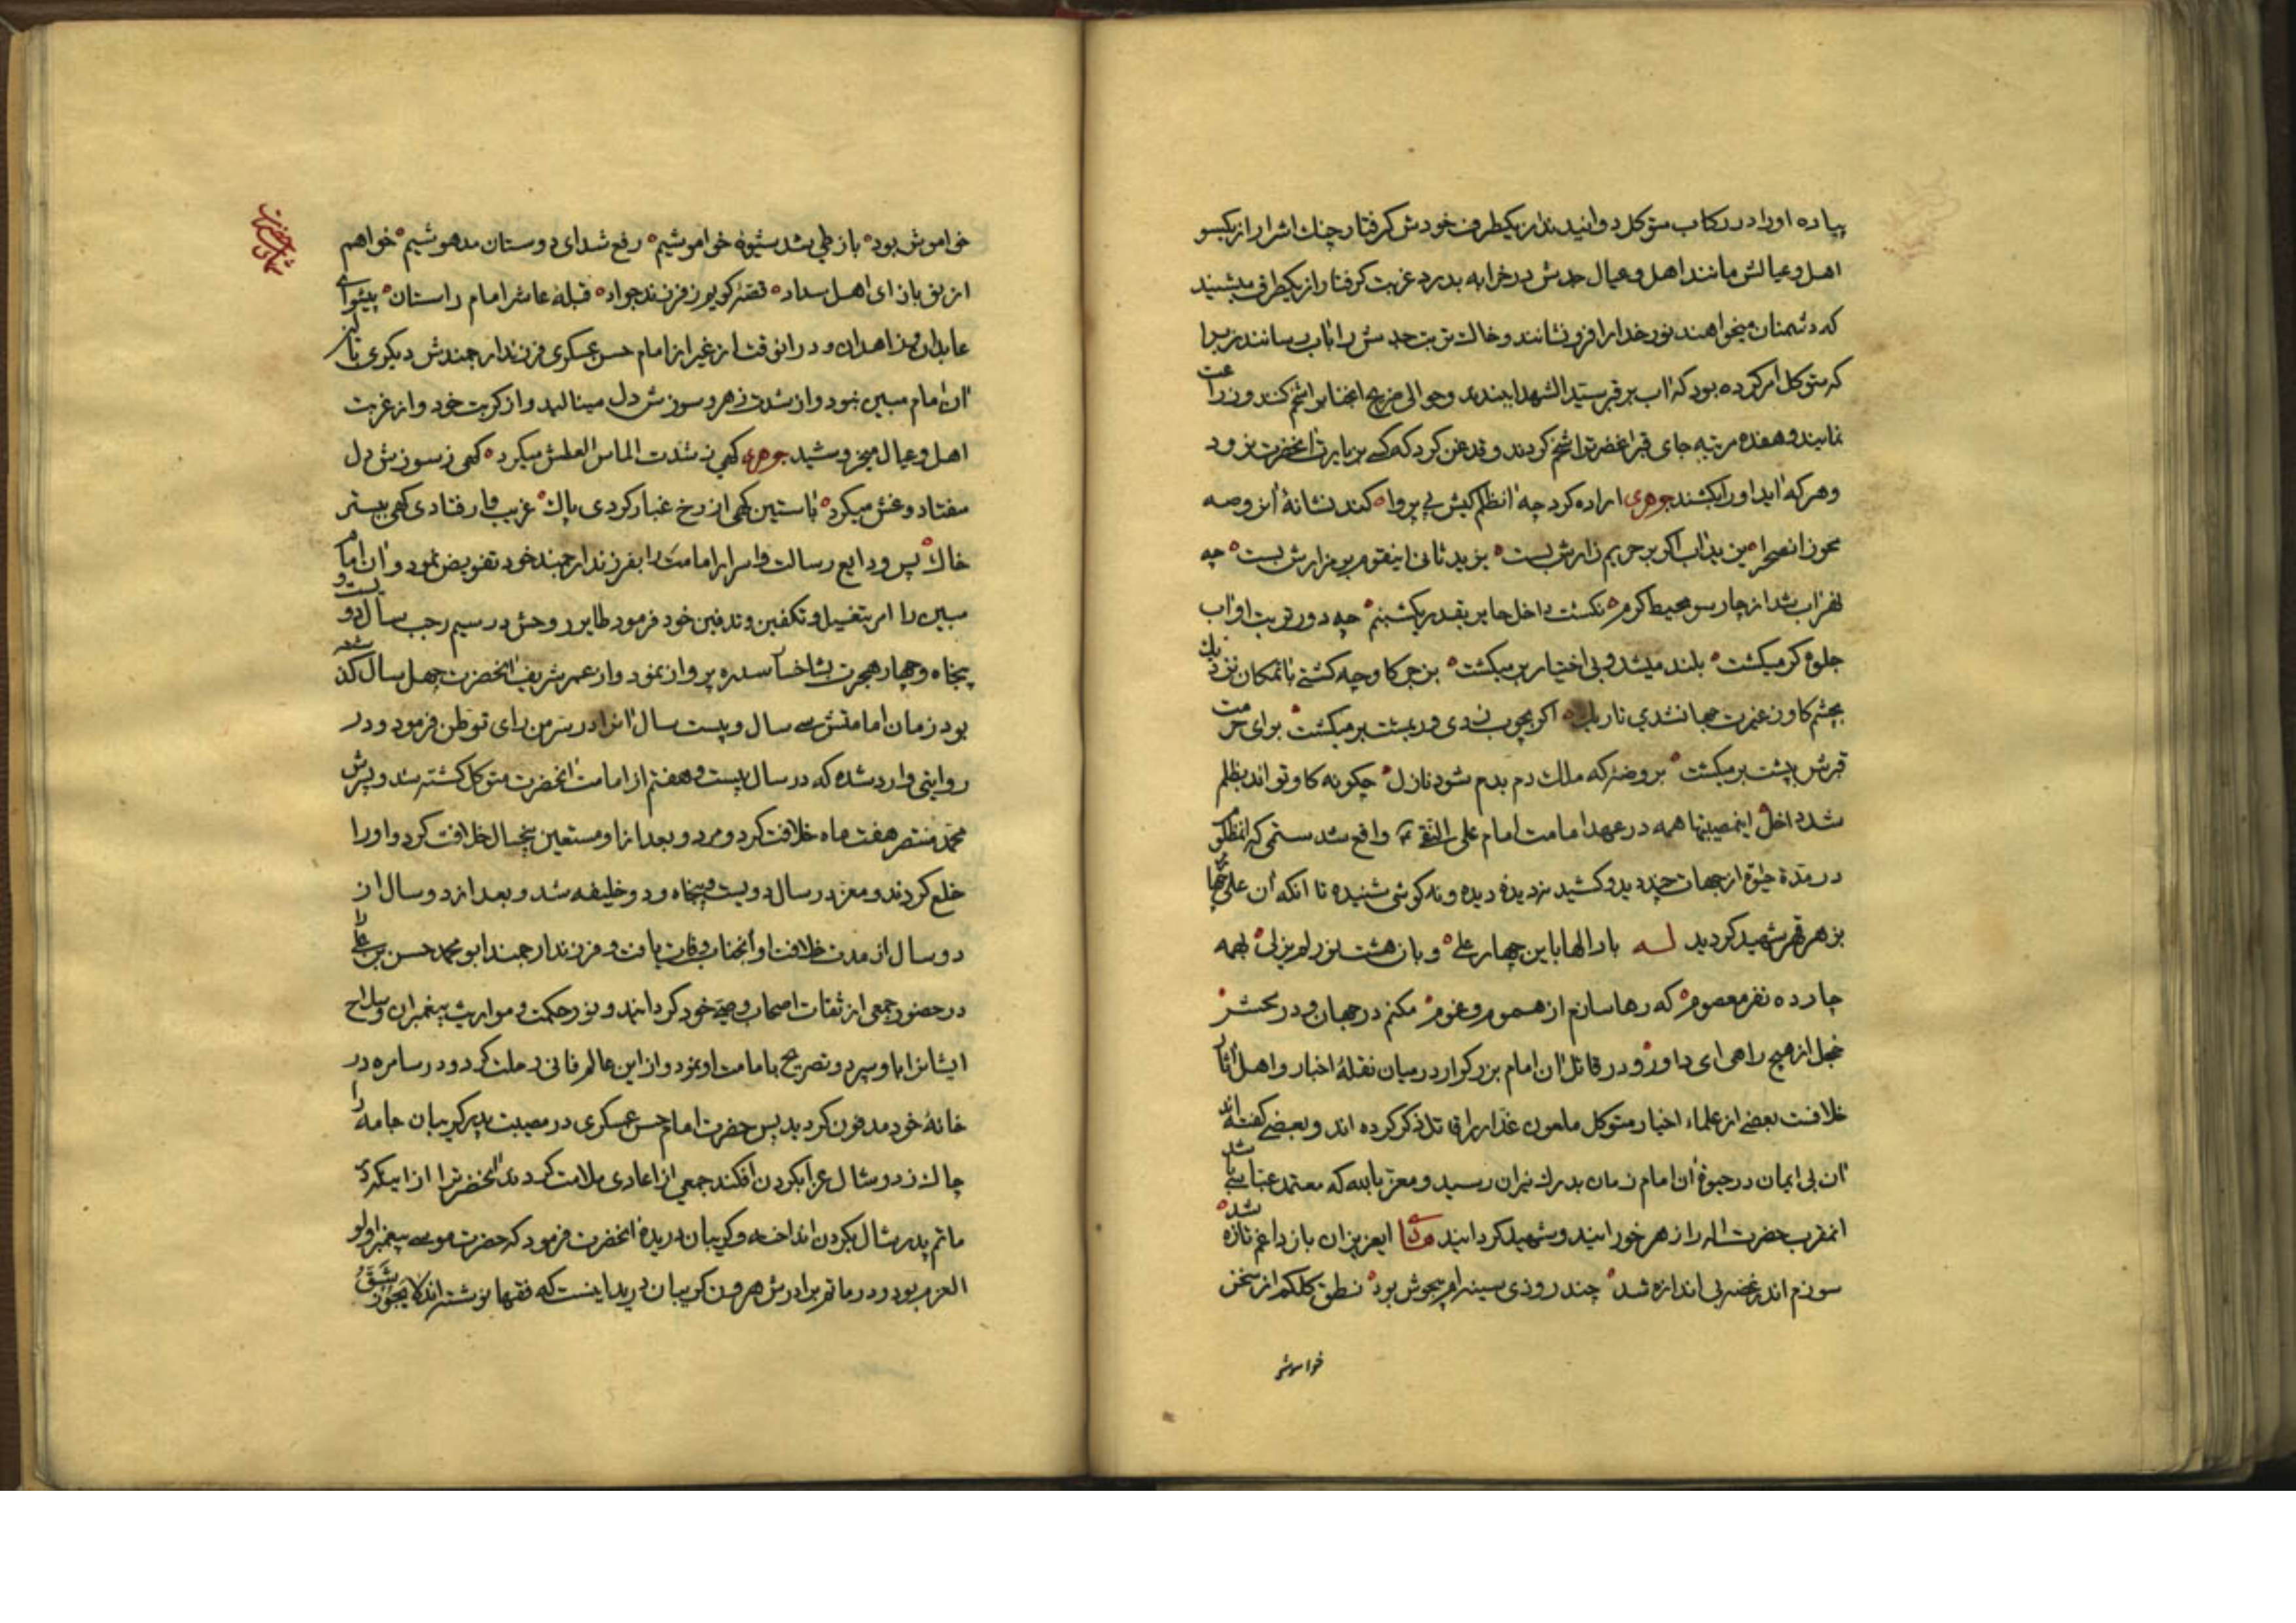 پیاده او را در رکاب متوکل دوانیدند از یکطرف خودش گرفتار چنك اشرار از یکسو
اهل و عیالش مانند اهل و عیال جدش در خرابه بدرد غربت گرفتار از یکطرف میشنید
که دشمنان میخواهند نور خدا را فرو نشانند و خاك تربت جدش را باب رسانند زیرا
که متوکل امر کرده بود که آب بر قبر سید الشهدا ببندند و حوالی ضریح انجناب را شخم کنند و زراعت
نمایند و هفده مرتبه جای قبر انحضرت را شخم کردند و قدغن کرد که کسی بزیارت انحضرت نرود
و هر که آید او را بکشند جوهری اراده کرد چه آنظلم کیش بی پروا کند نشانهٔ آن روضه
محو زانصحرا یزید آب اگر بر حریم زارش بست یزید ثانی اینقوم بر مزارش بست چه
آب شد از چار سو محیط کرم نگشت داخل حایر بقدر یکشبنم چه دور تربت او آب
جلوه گر میگشت بلند میشد و بی اختیار بر میگشت بزجر گاو چه گشتی بآنمکان نزدیك
بچشم گاو ز غیرت جهان شدی تاریك اگر بچوب زدی بر میگشت برای حرمت
قبرش بپشت بر میگشت بروضهٔ که ملك دم بدم شود نازل چگونه گاو تواند بظلم
شد داخل اینمصیبتها همه در عهد امامت امام علی النقی واقع شد ستمی که انمظلوم
در مدة حیوة از جهان دید و کشید نه دیدهٔ دیده و نه گوشی شنیده تا انکه آن
بزهر قهر شهید گردید لـه بار الها باین چهار علی و بان هشت نور لم یزلی بهمه
چارده نفر معصوم که رها سازم از هموم و غموم مکنم در جهان و در محشر
خجل از هیچ راهی ای داور و در قاتل آن امام بزرگوار در میان نقلهٔ اخبار و اهل آثار
خلافست بعضی از علماء اخیار متوکل ملعون غدار را قاتل ذکر کرده اند و بعضی گفته اند
آن بی ایمان در حیوة آن امام زمان بدرك نیران رسید و معتز بالله که معتمد عباسی باشد
انمقرب حضرت اله را زهر خورانید و شهید گردانید ایعزیزان باز داغم تازه شد
سوزم اندر غصه بی اندازه شد چند روزی سینه‌ام بیجوش بود نطق کلکم از سخن
خواموش
خواموش بود باز طی شد شیوهٔ خواموشیم رفع شد ای دوستان مدهوشیم خواهم
از نو باز ای اهل سداد قصهٔ گویم ز فرزند جواد قبلهٔ عاشر امام راستان پیشوای
عابدان و زاهدان و در انوقت از غیر از امام حسن عسکری فرزند ارجمندش دیگری نزد
آن امام مبین نبود و از شدت زهر و سوزش دل مینالید و از کربت خود و از غربت
اهل و عیال میخروشید جوهری گهی ز شدت الماس العطش میکرد گهی ز سوزش دل
میفتاد و غش میکرد باستین گهی از رخ غبار کردی پاك غریب وار فتادی گهی ببستر
خاك پس ودایع رسالت و اسرار امامت را بفرزند ارجمند خود تفویض نمود و آن امام
مبین را امر بتغسیل و تکفین و تدفین خود فرمود طایر روحش در سیم رجب سال دویست و
پنجاه و چهار هجرت بشاخسار سدره پرواز نمود و از عمر شریف انحضرت چهل سال گذشته
بود زمان امامتش سی سال و بیست سال آنرا در سر من رای توطن فرمود و در
روایتی وارد شده که در سال بیست و هفتم از امامت انحضرت متوکل کشته شد و پسرش
محمد منتصر هفت ماه خلافت کرد و مرد و بعد از او مستعین پنجسال خلافت کرد و او را
خلع کردند و معتز در سال دویست و پنجاه و دو خلیفه شد و بعد از دو سال از
دو سال از مدت خلافت او آنجناب وفات یافت و فرزند ارجمند ابو محمد حسن بن علی را
در حضور جمعی از ثقات اصحاب وصی خود گردانید و نور حکمت و مواریث پیغمبران و سلاح
ایشانرا باو سپرد و تصریح بامامت او نمود و از این عالم فانی رحلت کرد و در سامره در
خانهٔ خود مدفون گردید پس حضرت امام حسن عسکری در مصیبت پدر گریبان جامه را
چاك زد و شال عزا بگردن افکند جمعی از اعادی ملامت کردند انحضرت را از اینکه در
ماتم پدر شال بگردن انداخته و گریبان دریدهٔ انحضرت فرمود که حضرت موسی پیغمبر اولو
العزم بود و در ماتم برادرش هرون گریبان درید اینست که فقها نوشته اند لا یجوز شق